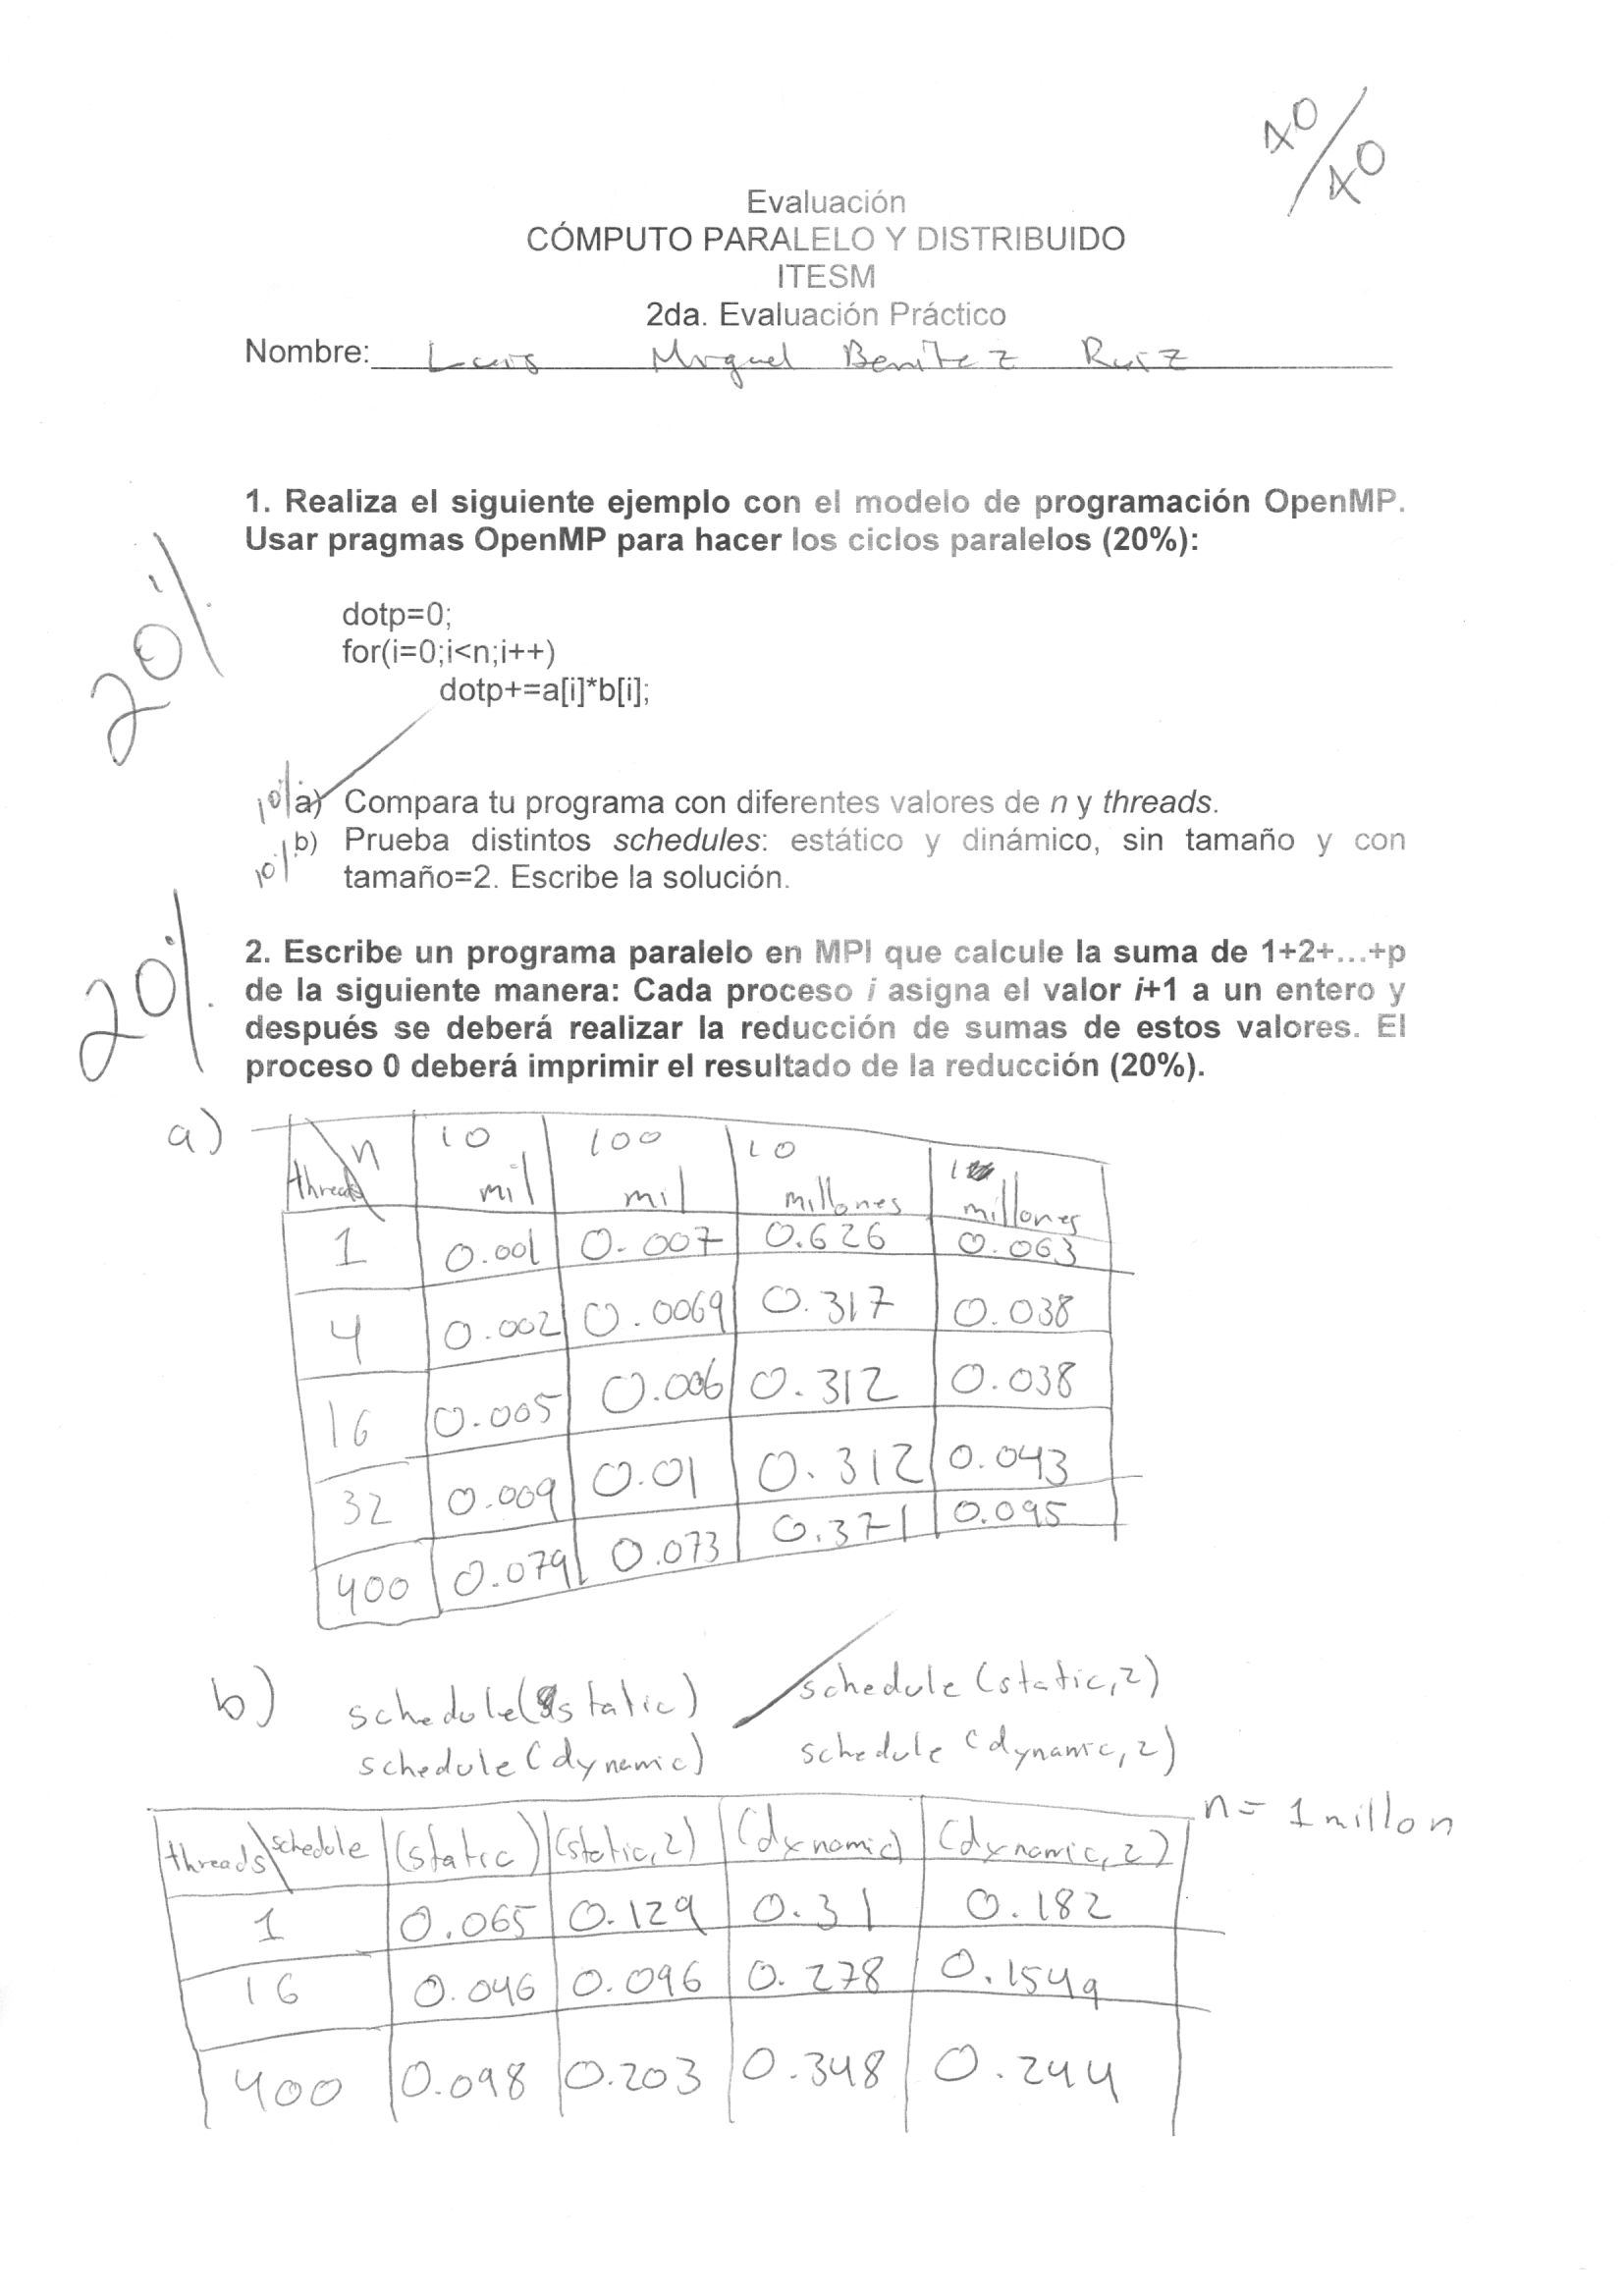 40/40
Evaluación
CÓMPUTO PARALELO Y DISTRIBUIDO
ITESM
2da. Evaluación Práctico
Nombre: Luis Miguel Benitez Ruiz
1. Realiza el siguiente ejemplo con el modelo de programación OpenMP.
Usar pragmas OpenMP para hacer los ciclos paralelos (20%):
20%
dotp=0;
for(i=0;i<n;i++)
dotp+=a[i]*b[i];
10% a) Compara tu programa con diferentes valores de n y threads.
10% b) Prueba distintos schedules: estático y dinámico, sin tamaño y con
tamaño=2. Escribe la solución.
20%
2. Escribe un programa paralelo en MPI que calcule la suma de 1+2+...+p
de la siguiente manera: Cada proceso i asigna el valor i+1 a un entero y
después se deberá realizar la reducción de sumas de estos valores. El
proceso 0 deberá imprimir el resultado de la reducción (20%).
a)
threads n 10 mil 100 mil 10 millones 1 millones
1 0.001 0.007 0.626 0.063
4 0.002 0.0069 0.317 0.038
16 0.005 0.006 0.312 0.038
32 0.009 0.01 0.312 0.043
400 0.079 0.073 0.371 0.095
b) schedule(static) schedule(static,2)
schedule(dynamic) schedule(dynamic,2)
n= 1 millon
threads\schedule (static) (static,2) (dynamic) (dynamic,2)
1 0.065 0.129 0.31 0.182
16 0.046 0.096 0.278 0.1549
400 0.098 0.203 0.348 0.244